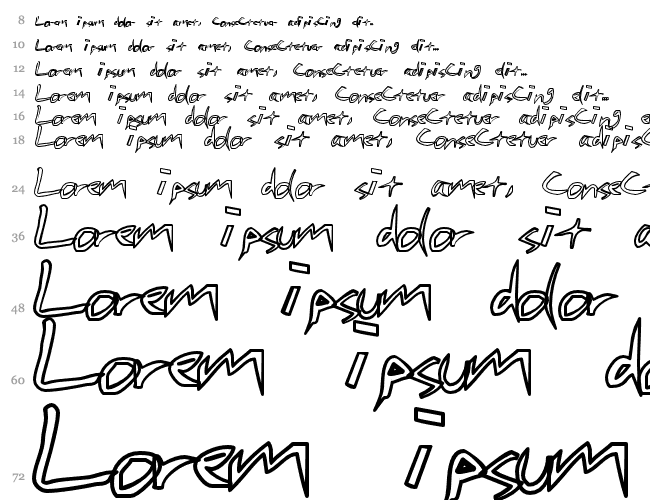 8 Lorem ipsum dolor sit amet, ConseCtetuer adipisCing elit...
10 Lorem ipsum dolor sit amet, ConseCtetuer adipisCing elit...
12 Lorem ipsum dolor sit amet, ConseCtetuer adipisCing elit...
14 Lorem ipsum dolor sit amet, ConseCtetuer adipisCing elit...
16 Lorem ipsum dolor sit amet, ConseCtetuer adipisCing e
18 Lorem ipsum dolor sit amet, ConseCtetuer adipisC
24 Lorem ipsum dolor sit amet, ConseCt
36 Lorem ipsum dolor sit a
48 Lorem ipsum dolor
60 Lorem ipsum do
72 Lorem ipsum